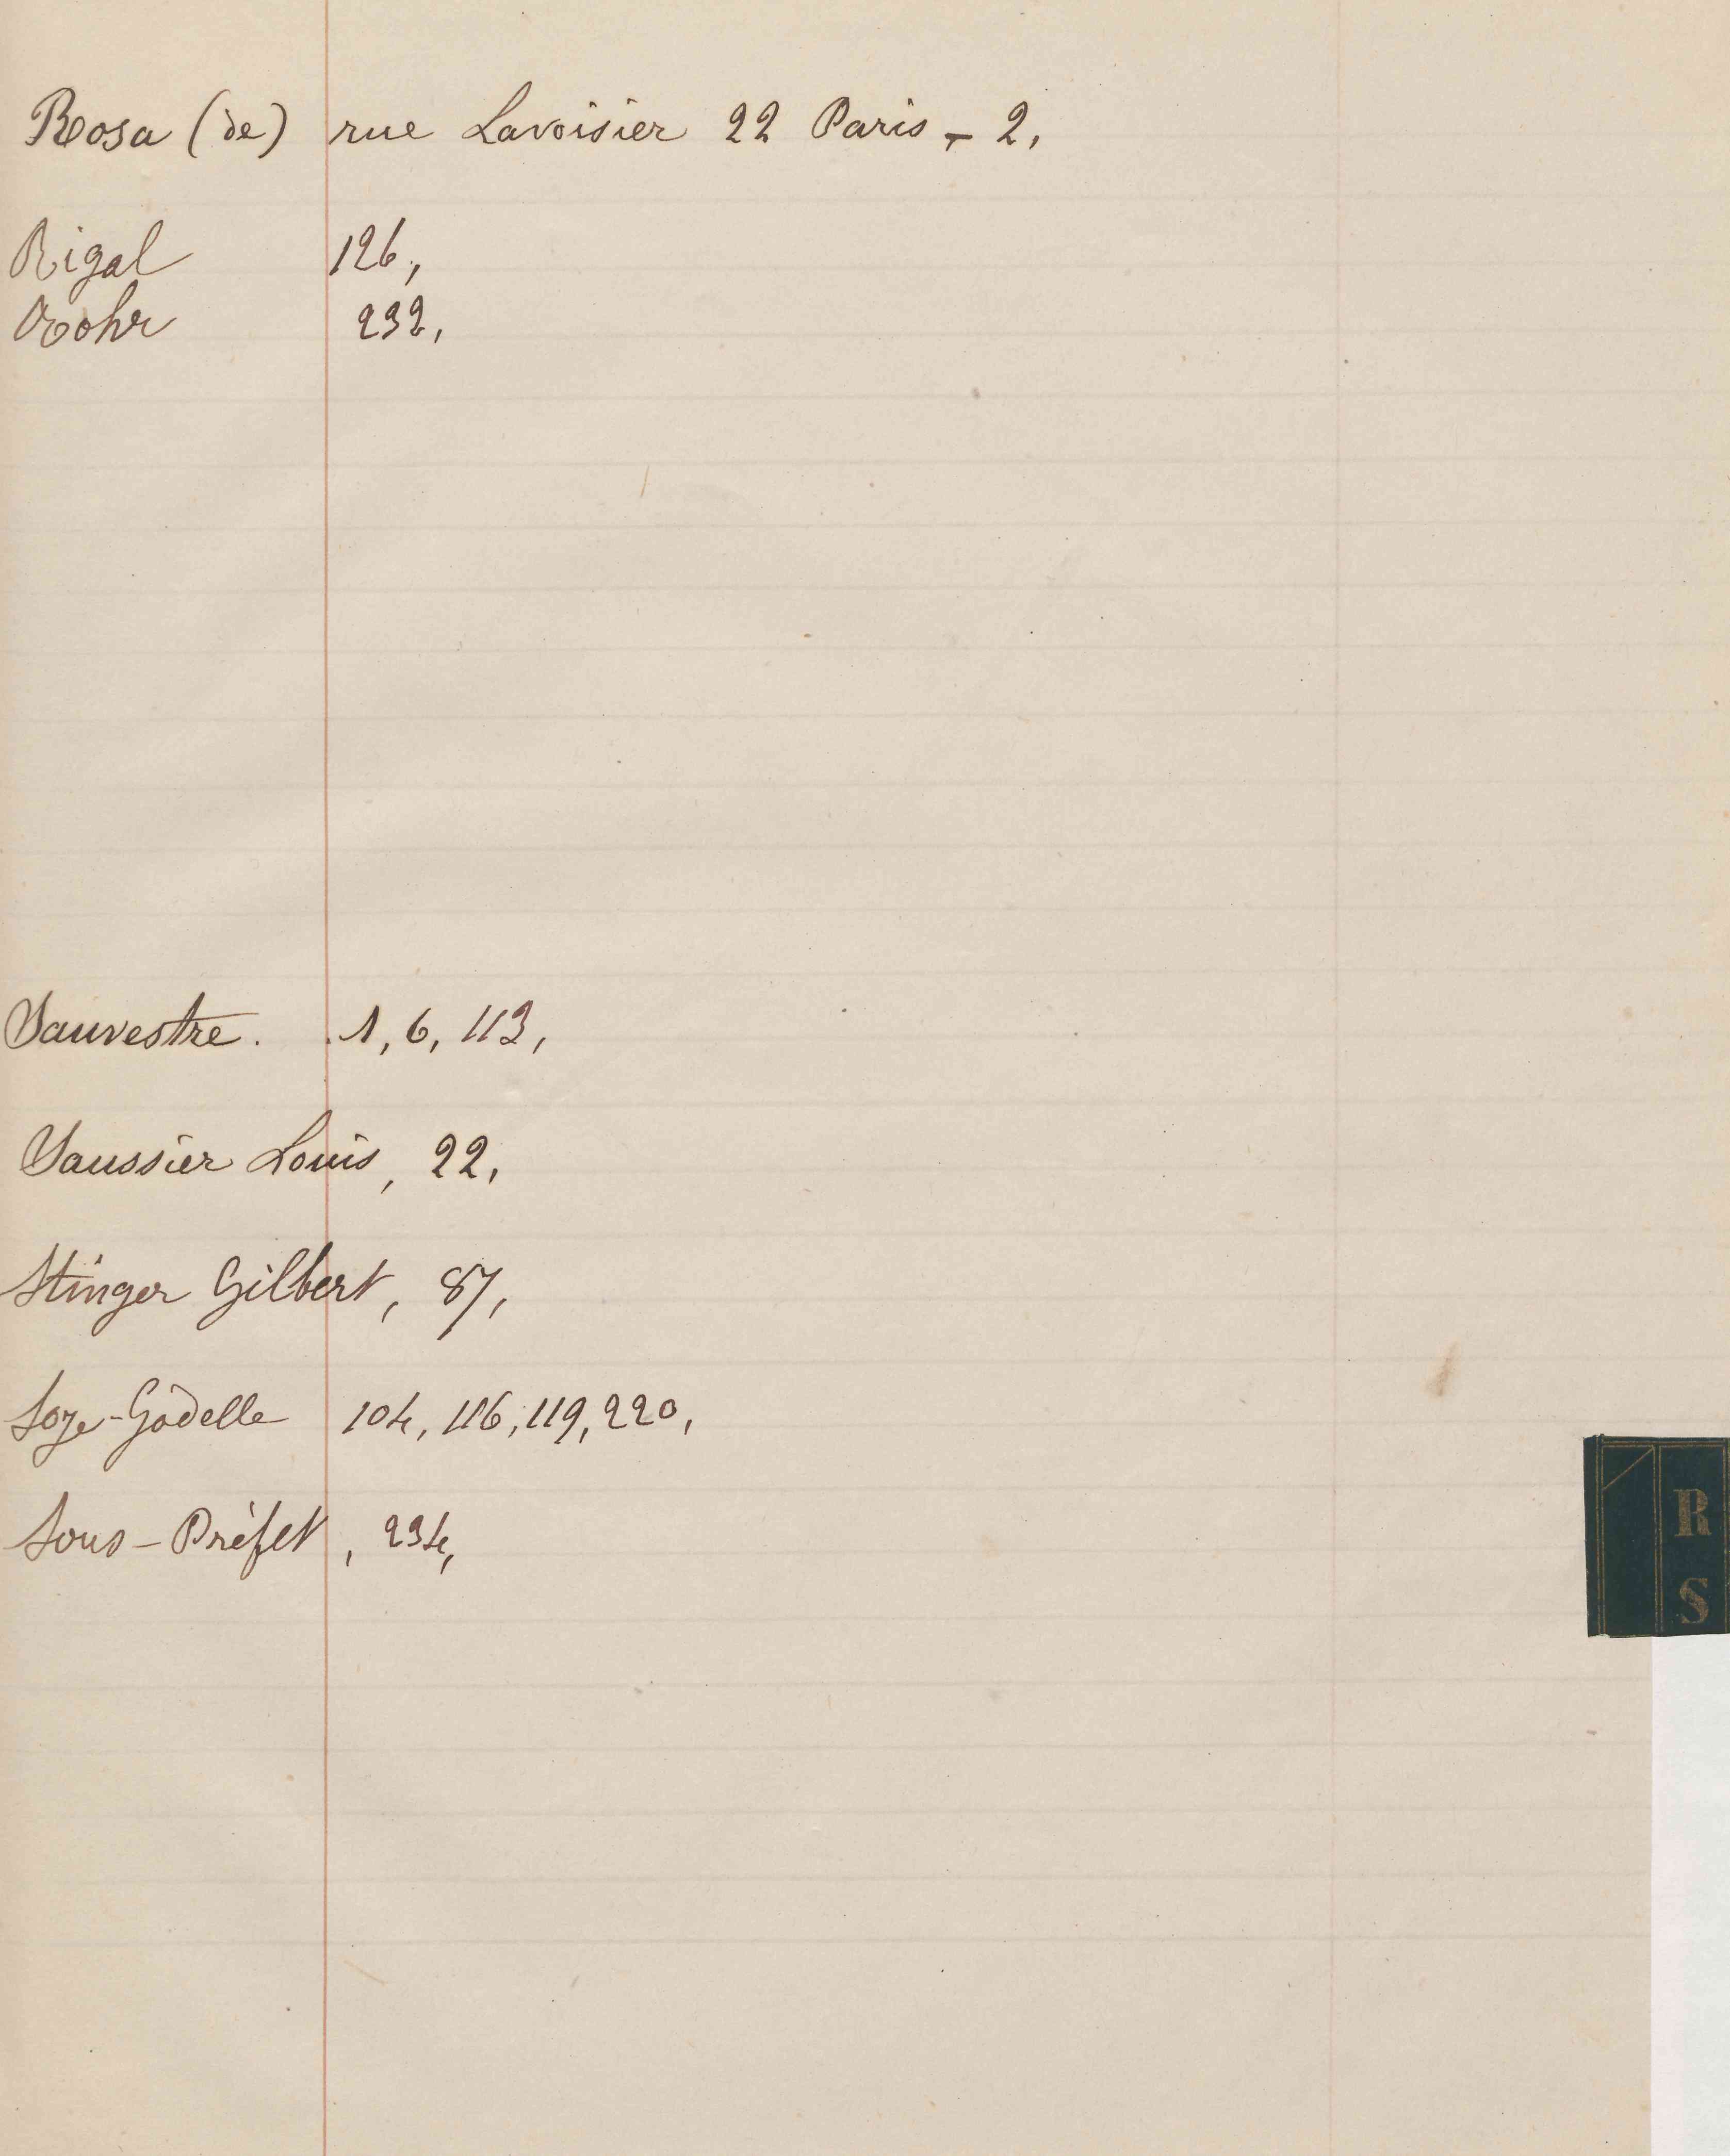 Rosa (de) rue Lavoisier 22 Paris - 2,
Rigal 126,
Rohr 232,
Sauvestre. 1, 6, 113,
Saussier Louis, 22,
Stinger Gilbert, 87,
Soze-Godelle 104, 116, 119, 220,
Sous-Préfet, 234,
R
S